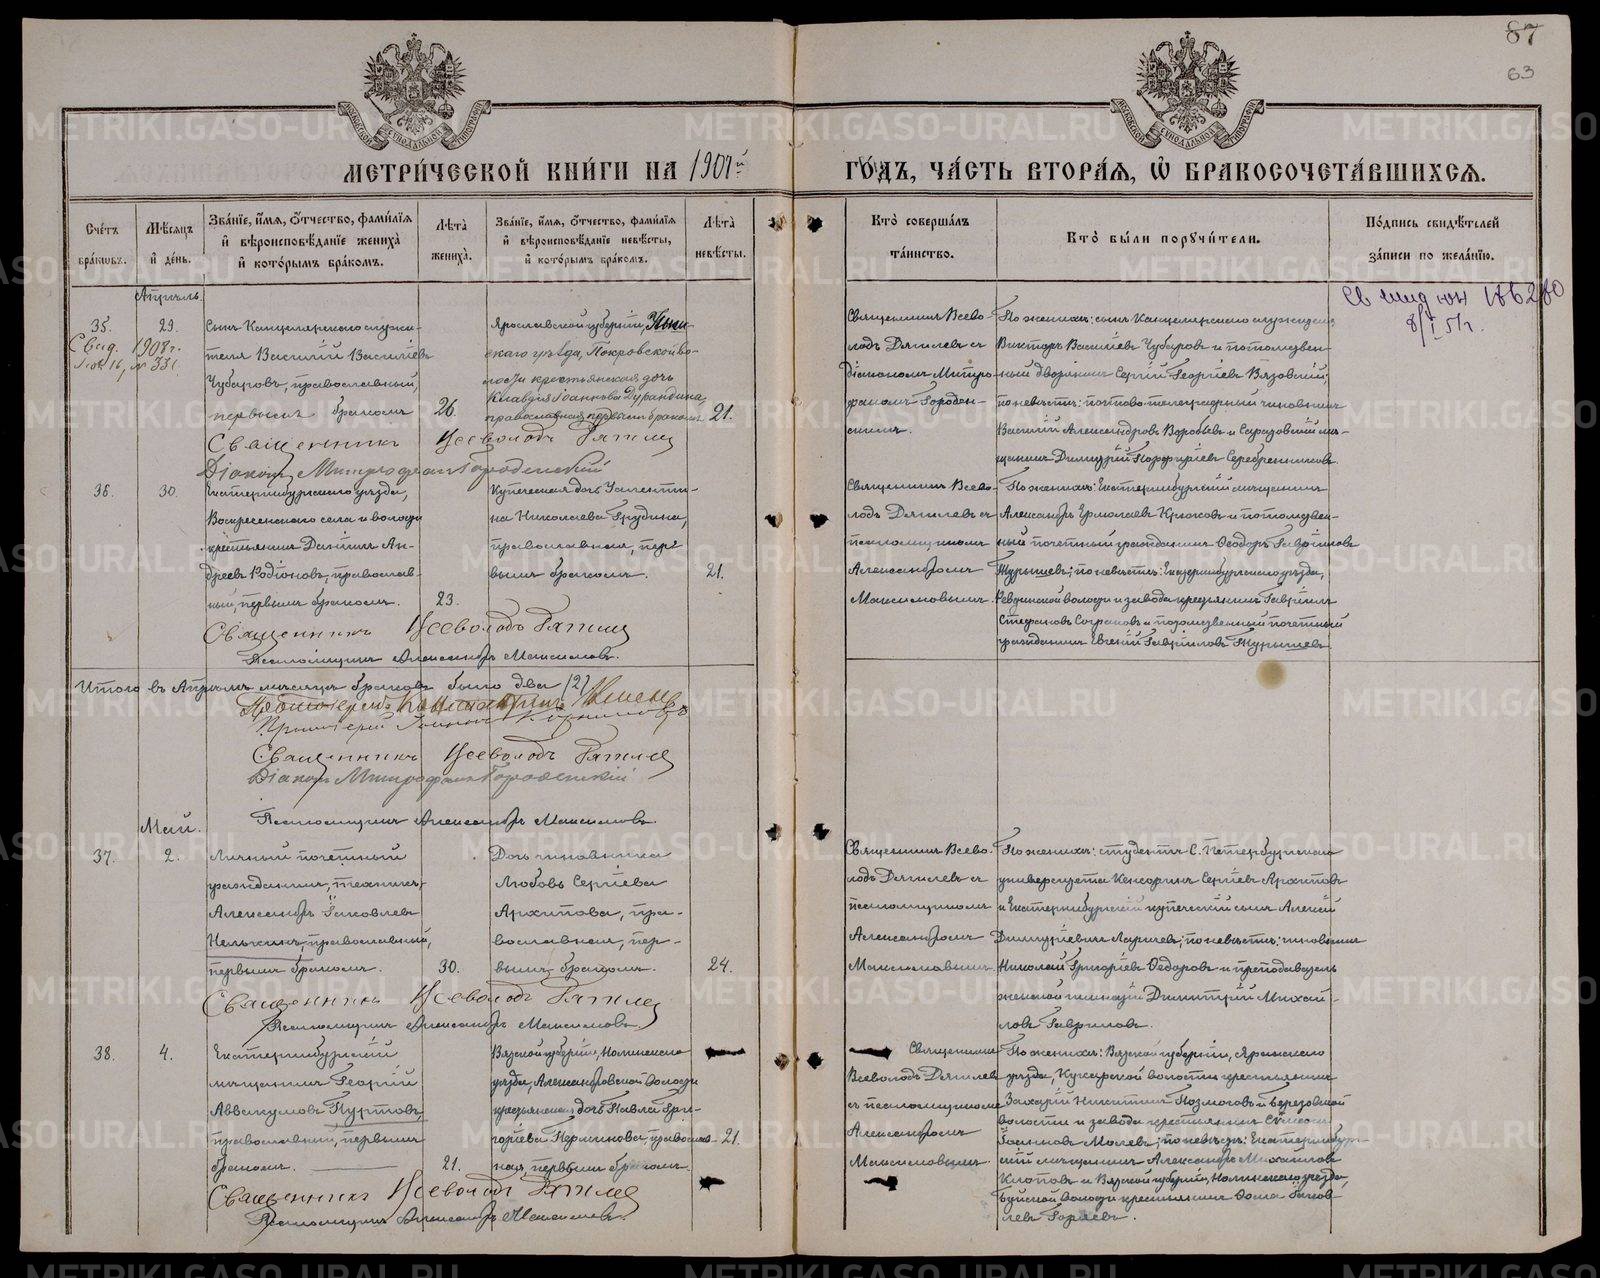 87
63
МЕТРИ́ЧЕСКОЙ КНИ́ГИ НА 1907й ГО́ДЪ, ЧА́СТЬ ВТОРА́Ѧ, Ѿ БРАКОСОЧЕТА́ВШИХСѦ.
Сче́тъ бра́ковъ.
Мѣ́сѧцъ и́ де́нь.
Зва́нїе, и́мѧ, о́тчество, фами́лїѧ и́ вѣроисповѣ́данїе жениха̀ и́ кото́рымъ бра́комъ.
Лѣ́та жениха̀.
Зва́нїе, и́мѧ, о́тчество, фами́лїѧ и́ вѣроисповѣ́данїе невѣ́сты, и́ кото́рымъ бра́комъ.
Лѣ́та невѣ́сты.
Кто̀ соверша́лъ та́инство.
Кто̀ бы́ли порꙋчи́тели.
По́дпись свидѣ́телей за́писи по жела́нїю.
Апрѣль
35.
29.
Свид. 1908 г.
Сынъ Канцелярскаго служи-
теля Василій Васильевъ
Чубаровъ, православный,
первымъ бракомъ
26.
Ярославской губерніи,
скаго уѣзда, Покровской во-
лости крестьянская дочь
Клавдія Іоаннова Дурандина,
православная, первымъ бракомъ
21.
Священникъ Всево-
лодъ Дягилевъ съ
Діакономъ Митро-
фаномъ Городен-
скимъ.
По женихѣ: сынъ Канцелярскаго служителя
Викторъ Васильевъ Чубаровъ и потомствен-
ный дворянинъ Сергій Георгіевъ Вязовскій;
по невѣстѣ: почтово-телеграфный чиновникъ
Василій Александровъ Воробьевъ и Сарапульскій мѣ-
щанинъ Димитрій Порфиріевъ Серебренниковъ.
8/I 51 г.
Священникъ Всеволодъ Дягилевъ
Діаконъ Митрофанъ Городенскій
36.
30.
Екатеринбургскаго уѣзда,
Воскресенскаго села и волости
крестьянинъ Даніилъ Ан-
дреевъ Родіоновъ, православ-
ный, первымъ бракомъ.
23.
Купеческая дочь Валенти-
на Николаева Грудина,
православная, пер-
вымъ бракомъ.
21.
Священникъ Всево-
лодъ Дягилевъ съ
псаломщикомъ
Александромъ
Максимовымъ.
По женихѣ: Екатеринбургскій мѣщанинъ
Александръ Ермолаевъ Крюковъ и потомствен-
ный почетный гражданинъ Ѳеодоръ Гавриловъ
Турышевъ; по невѣстѣ: Екатеринбургскаго уѣзда,
Ревдинской волости и завода крестьянинъ Гавріилъ
Стефановъ и потомственный почетный
гражданинъ Евгеній Гавриловъ Турышевъ
Священникъ Всеволодъ Дягилевъ
Псаломщикъ Александръ Максимовъ.
Итого въ Апрѣлѣ мѣсяцѣ браковъ было два (2)
Протоіерей
Протоіерей Іоаннъ
Священникъ Всеволодъ Дягилевъ
Діаконъ Митрофанъ Городенскій
Псаломщикъ Александръ Максимовъ.
Май.
37.
2.
Личный почетный
гражданинъ, техникъ
Александръ Яковлевъ
православный,
первымъ бракомъ.
30.
Дочь чиновника
Любовь Сергіева
Архипова, пра-
вославная, пер-
вымъ бракомъ.
24.
Священникъ Всево-
лодъ Дягилевъ съ
псаломщикомъ
Александромъ
Максимовымъ
По женихѣ: студентъ С. Петербургскаго
университета Кенсоринъ Сергіевъ Архиповъ
и Екатеринбургскій купеческій сынъ Алексій
Димитріевичъ Ларичевъ; по невѣстѣ: чиновникъ
Николай Григоріевъ Ѳедоровъ и преподаватель
женской гимназіи Димитрій Михай-
ловъ Гавриловъ.
Священникъ Всеволодъ Дягилевъ
Псаломщикъ Александръ Максимовъ
38.
4.
Екатеринбургскій
мѣщанинъ Георгій
Аввакумовъ Пуртовъ,
православный, первымъ
бракомъ.
21.
Вятской губерніи, Нолинскаго
уѣзда, Александровской волости
крестьянская дочь Павла Гри-
горіева Перминова, православ-
ная, первымъ бракомъ.
21.
Священникъ
Всеволодъ Дягилевъ
съ псаломщикомъ
Александромъ
Максимовымъ
По женихѣ: Вятской губерніи, Яранскаго
уѣзда, Кукарской волости крестьянинъ
Захарій Никитинъ Позмоговъ и Березовской
волости и завода крестьянинъ Симеонъ
Іоанновъ Малевъ; по невѣстѣ: Екатеринбург-
скій мѣщанинъ Александръ Михайловъ
Клоповъ и Вятской губерніи, Нолинскаго уѣзда,
Буйской волости крестьянинъ Ѳома Яков-
левъ Горяевъ.
Священникъ Всеволодъ Дягилевъ
Псаломщикъ Александръ Максимовъ.
METRIKI.GASO-URAL.RU